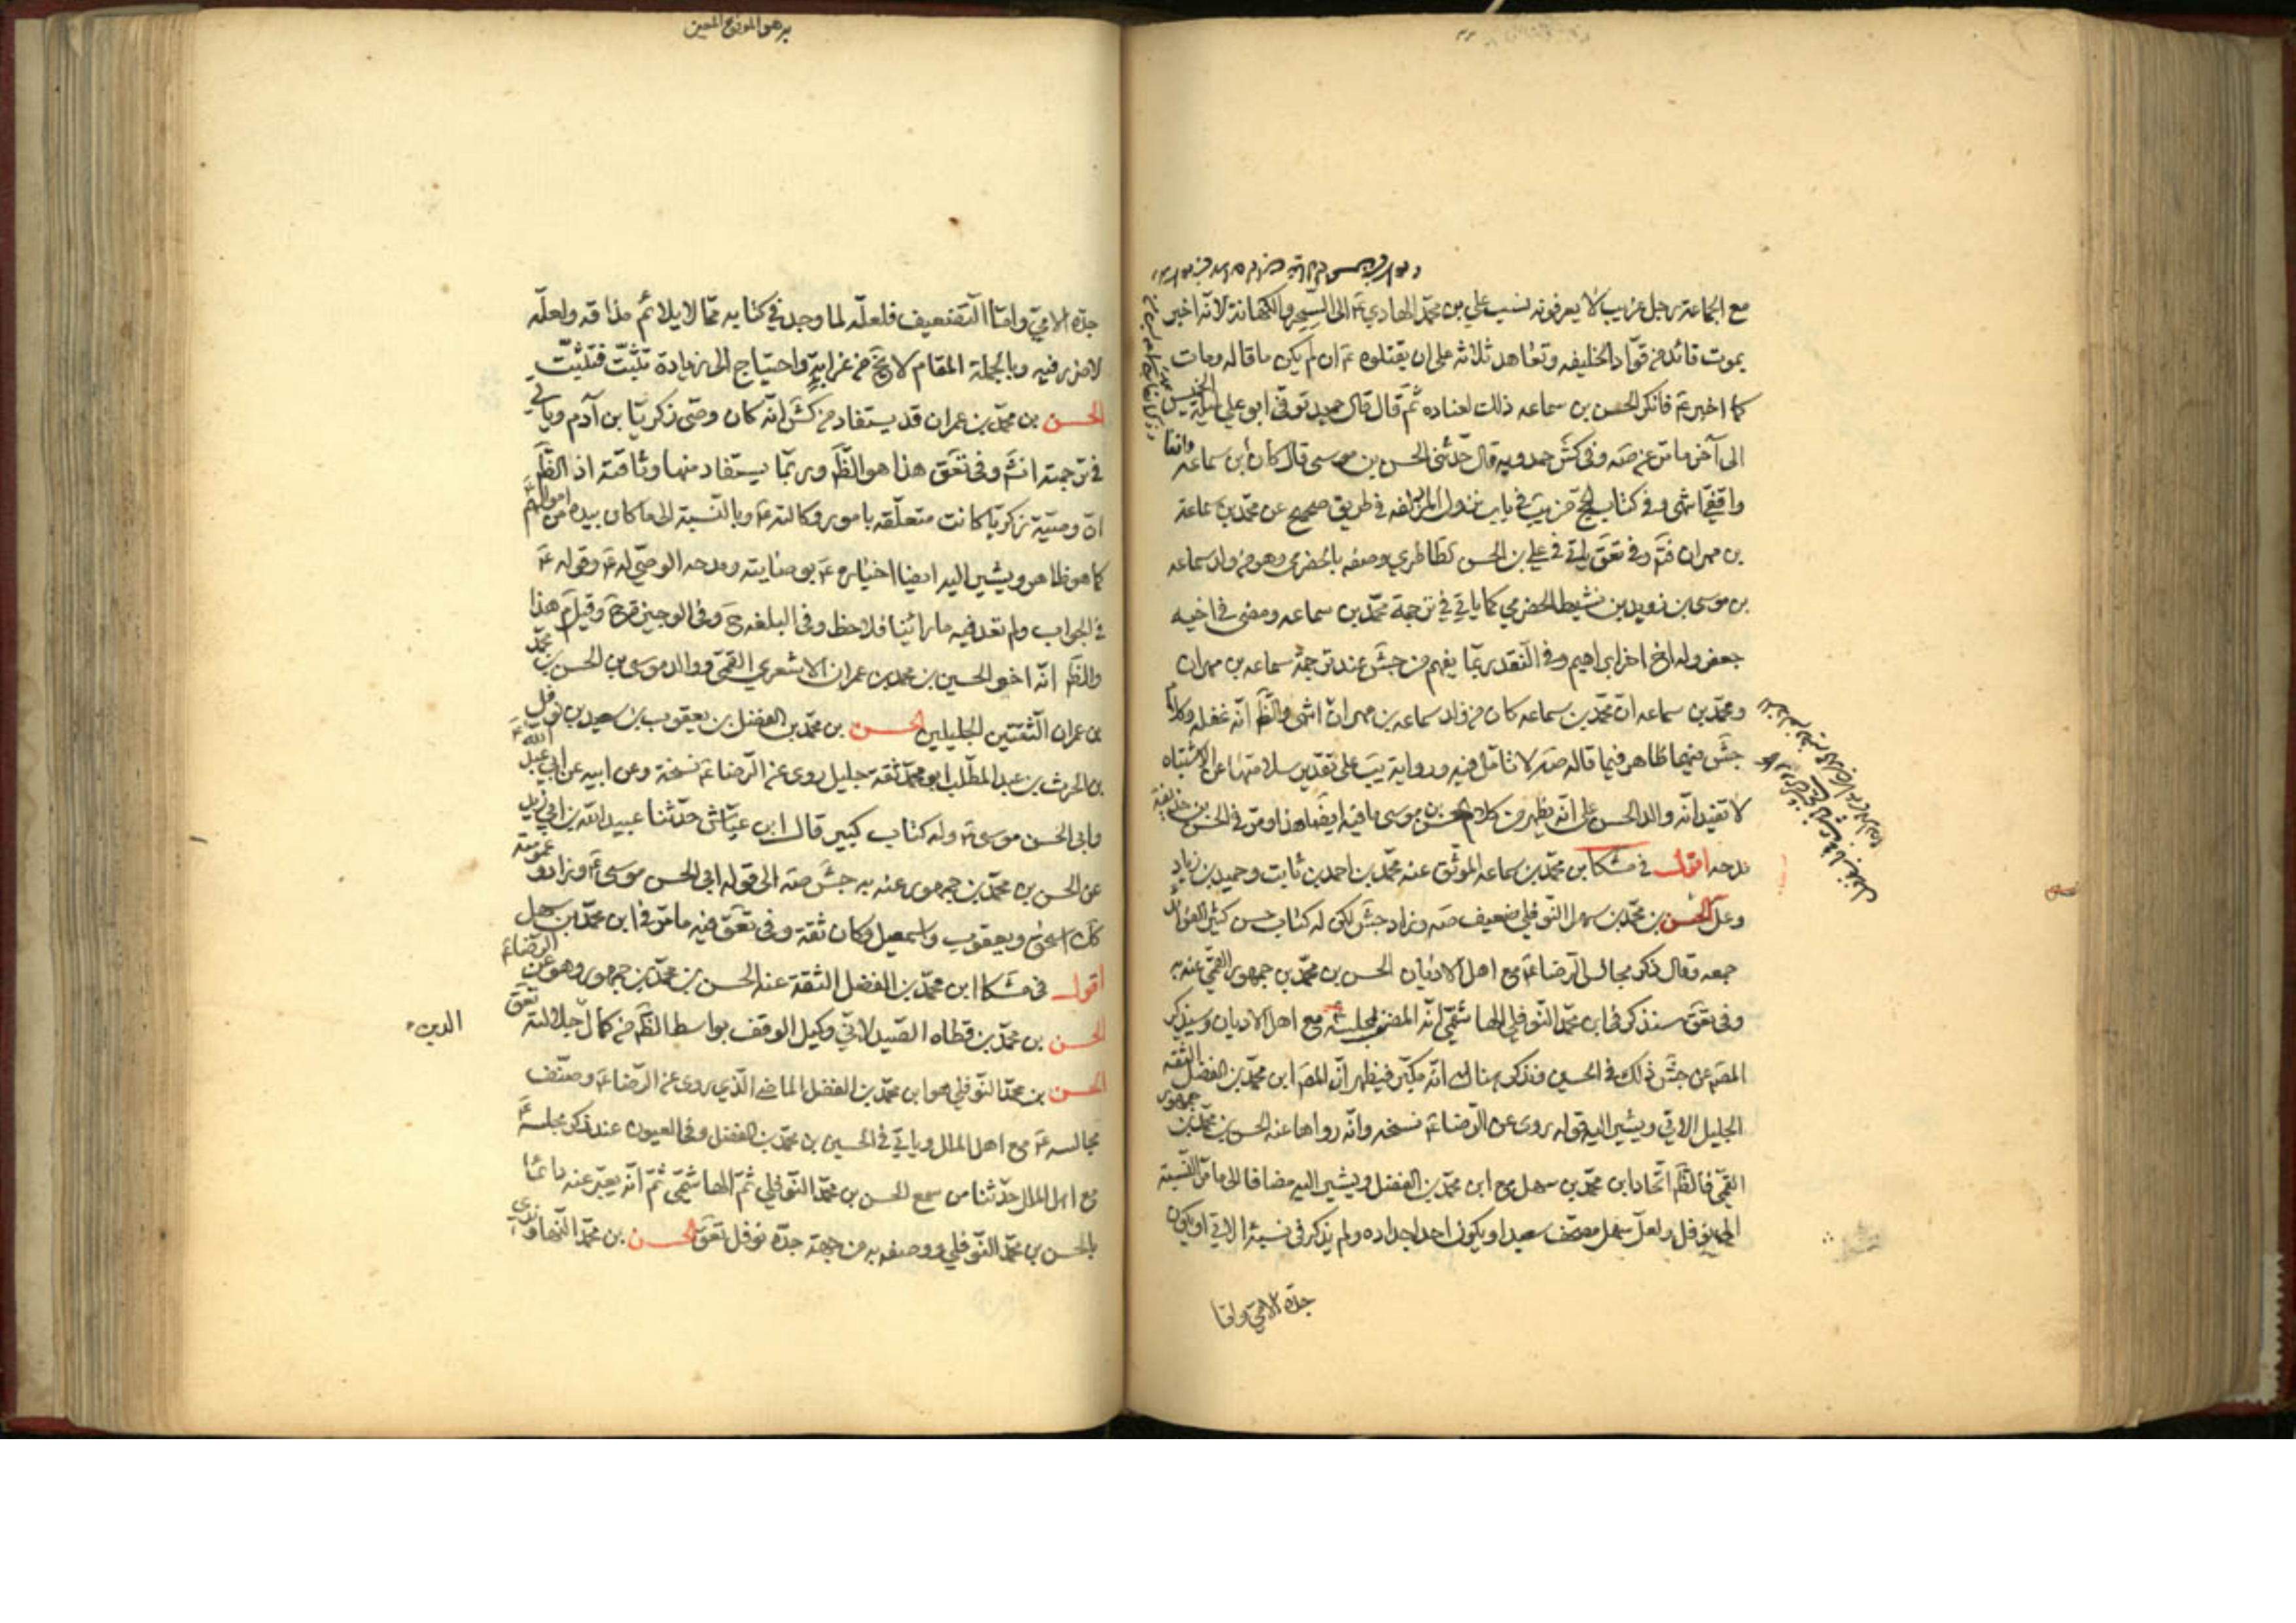 مع الجماعة رجل غريب لا يعرفونه نسب علي بن محمد الهادي ع الى السحر والكهانة لانه اخبر
بموت قائد من قواد الخليفه وتعاهد ثلاثه على ان يقتلوه ع ان لم يكن ما قاله ومات
كما اخبر ع فانكر الحسن بن سماعه ذلك لعناده ثم قال قال حميد توفي ابو علي ليلة الخميس
الى آخر ما مر عن صه وفي كش حمدويه قال حدثني الحسن بن موسى قال كان ابن سماعه واقفا
واقفيا انتهى وفي كتاب الحج من يب في باب نزول المزدلفه في طريق صحيح عن محمد بن سماعة
بن مهران فتم وفي تعق ياتي في علي بن الحسن الطاطري يوصفه بالحضرمي وهو من ولد سماعه
بن موسى بن زويد بن نشيط الحضرمي كما ياتي في ترجمة محمد بن سماعه ومضى في اخيه
جعفر وله اخ اخر ابراهيم وفي النقد ربما يفهم من جش عند ترجمة سماعه بن مهران
ومحمد بن سماعه ان محمد بن سماعه كان من ولد سماعه بن مهران انتهى والظم انه غفله وكلام
جش فيهما ظاهر فيما قاله صه لا تامل فيه ورواية يب على تقدير سلامتها عن الاشتباه
لا تفيد انه والد الحسن على انه يظهر من كلام الحسن بن موسى ما فيه ايضا هذا ومر في الحسن بن حذيفة
مدحه اقول في مشكا ابن محمد بن سماعه الموثق عنه محمد بن احمد بن ثابت وحميد بن زياد
الحسن بن محمد بن سهل النوفلي ضعيف صه وزاد جش لكن له كتاب حسن كثير الفوائد
جمعه وقال ذكر مجالس الرضا ع مع اهل الاديان الحسن بن محمد بن جمهور القمي عنه به
وفي تعق سنذكر في ابن محمد النوفلي الهاشمي انه المصنف لمجلسه ع مع اهل الاديان وسيذكر
المصم عن جش ذلك في الحسين ونذكر هناك انه مكبر فيظهر ان المصم ابن محمد بن الفضل الثقه
الجليل الاتي ويشير اليه قوله روى عن الرضا ع نسخه وانه رواها عنه الحسن بن محمد بن جمهور
القمي فالظم اتحاد ابن محمد بن سهل مع ابن محمد بن الفضل ويشير اليه مضافا الى ما مر النسبة
الى نوفل ولعل سهل مصحف سعيد او يكون احد اجداده ولم يذكر في نسبة الاتي او يكون
جده الامي واما
جده الامي واما التضعيف فلعله لما وجد في كتابه مما لا يلائم مذاقه ولعله
لا ضرر فيه وبالجملة المقام لا يخ من غرابة واحتياج الى زيادة تثبت فتثبت
الحسن بن محمد بن عمران قد يستفاد من كش انه كان وصى زكريا بن آدم وياتي
في ترجمته انتهى وفي تعق هذا هو الظم وربما يستفاد منها وثاقته اذ الظم
ان وصية زكريا كانت متعلقه بامور وكالته ع وبالنسبة الى ما كان بيده من اموالهم ع
كما هو ظاهر ويشير اليه ايضا اخباره ع بوصايته ومدحه الوصي له ع وقوله ع
في الجواب ولم تعد فيه ما راينا فلاحظ وفي البلغه ح وفي الوجيزة ح وقيل م هذا
والظم انه اخو الحسين بن محمد بن عمران الاشعري القمي ووالد موسى بن الحسن بن محمد
بن عمران الثقتين الجليلين الحسن بن محمد بن الفضل بن يعقوب بن سعيد بن نوفل
بن الحرث بن عبد المطلب ابو محمد ثقة جليل روى عن الرضا ع نسخة وعن ابيه عن ابي عبد الله ع
وابي الحسن موسى ع وله كتاب كبير قال ابن عياش حدثنا عبيد الله بن ابي زيد
عن الحسن بن محمد بن جمهور عنه به جش صه الى قوله ابي الحسن موسى ع وزاد وعمومته
كك اسحق ويعقوب واسمعيل وكان ثقة وفي تعق فيه ما مر في ابن محمد بن سهل
اقول في مشكا ابن محمد بن الفضل الثقة عنه الحسن بن محمد بن جمهور وهو عن الرضا ع
الحسن بن محمد بن قطاه الصيدلاني وكيل الوقف بواسط الظم من كمال جلالته تعق
الدين
الحسن بن محمد النوفلي هو ابن محمد بن الفضل الماضي الذي روى عن الرضا ع وصنف
مجالسه ع مع اهل الملل وياتي في الحسين بن محمد بن الفضل وفي العيون عند ذكر مجلسه ع
مع اهل الملل حدثنا من سمع الحسن بن محمد النوفلي ثم الهاشمي ثم انه يعبر عنه دائما
بالحسن بن محمد النوفلي ووصفه به من جهة جده نوفل تعق الحسن بن محمد النهاوندي